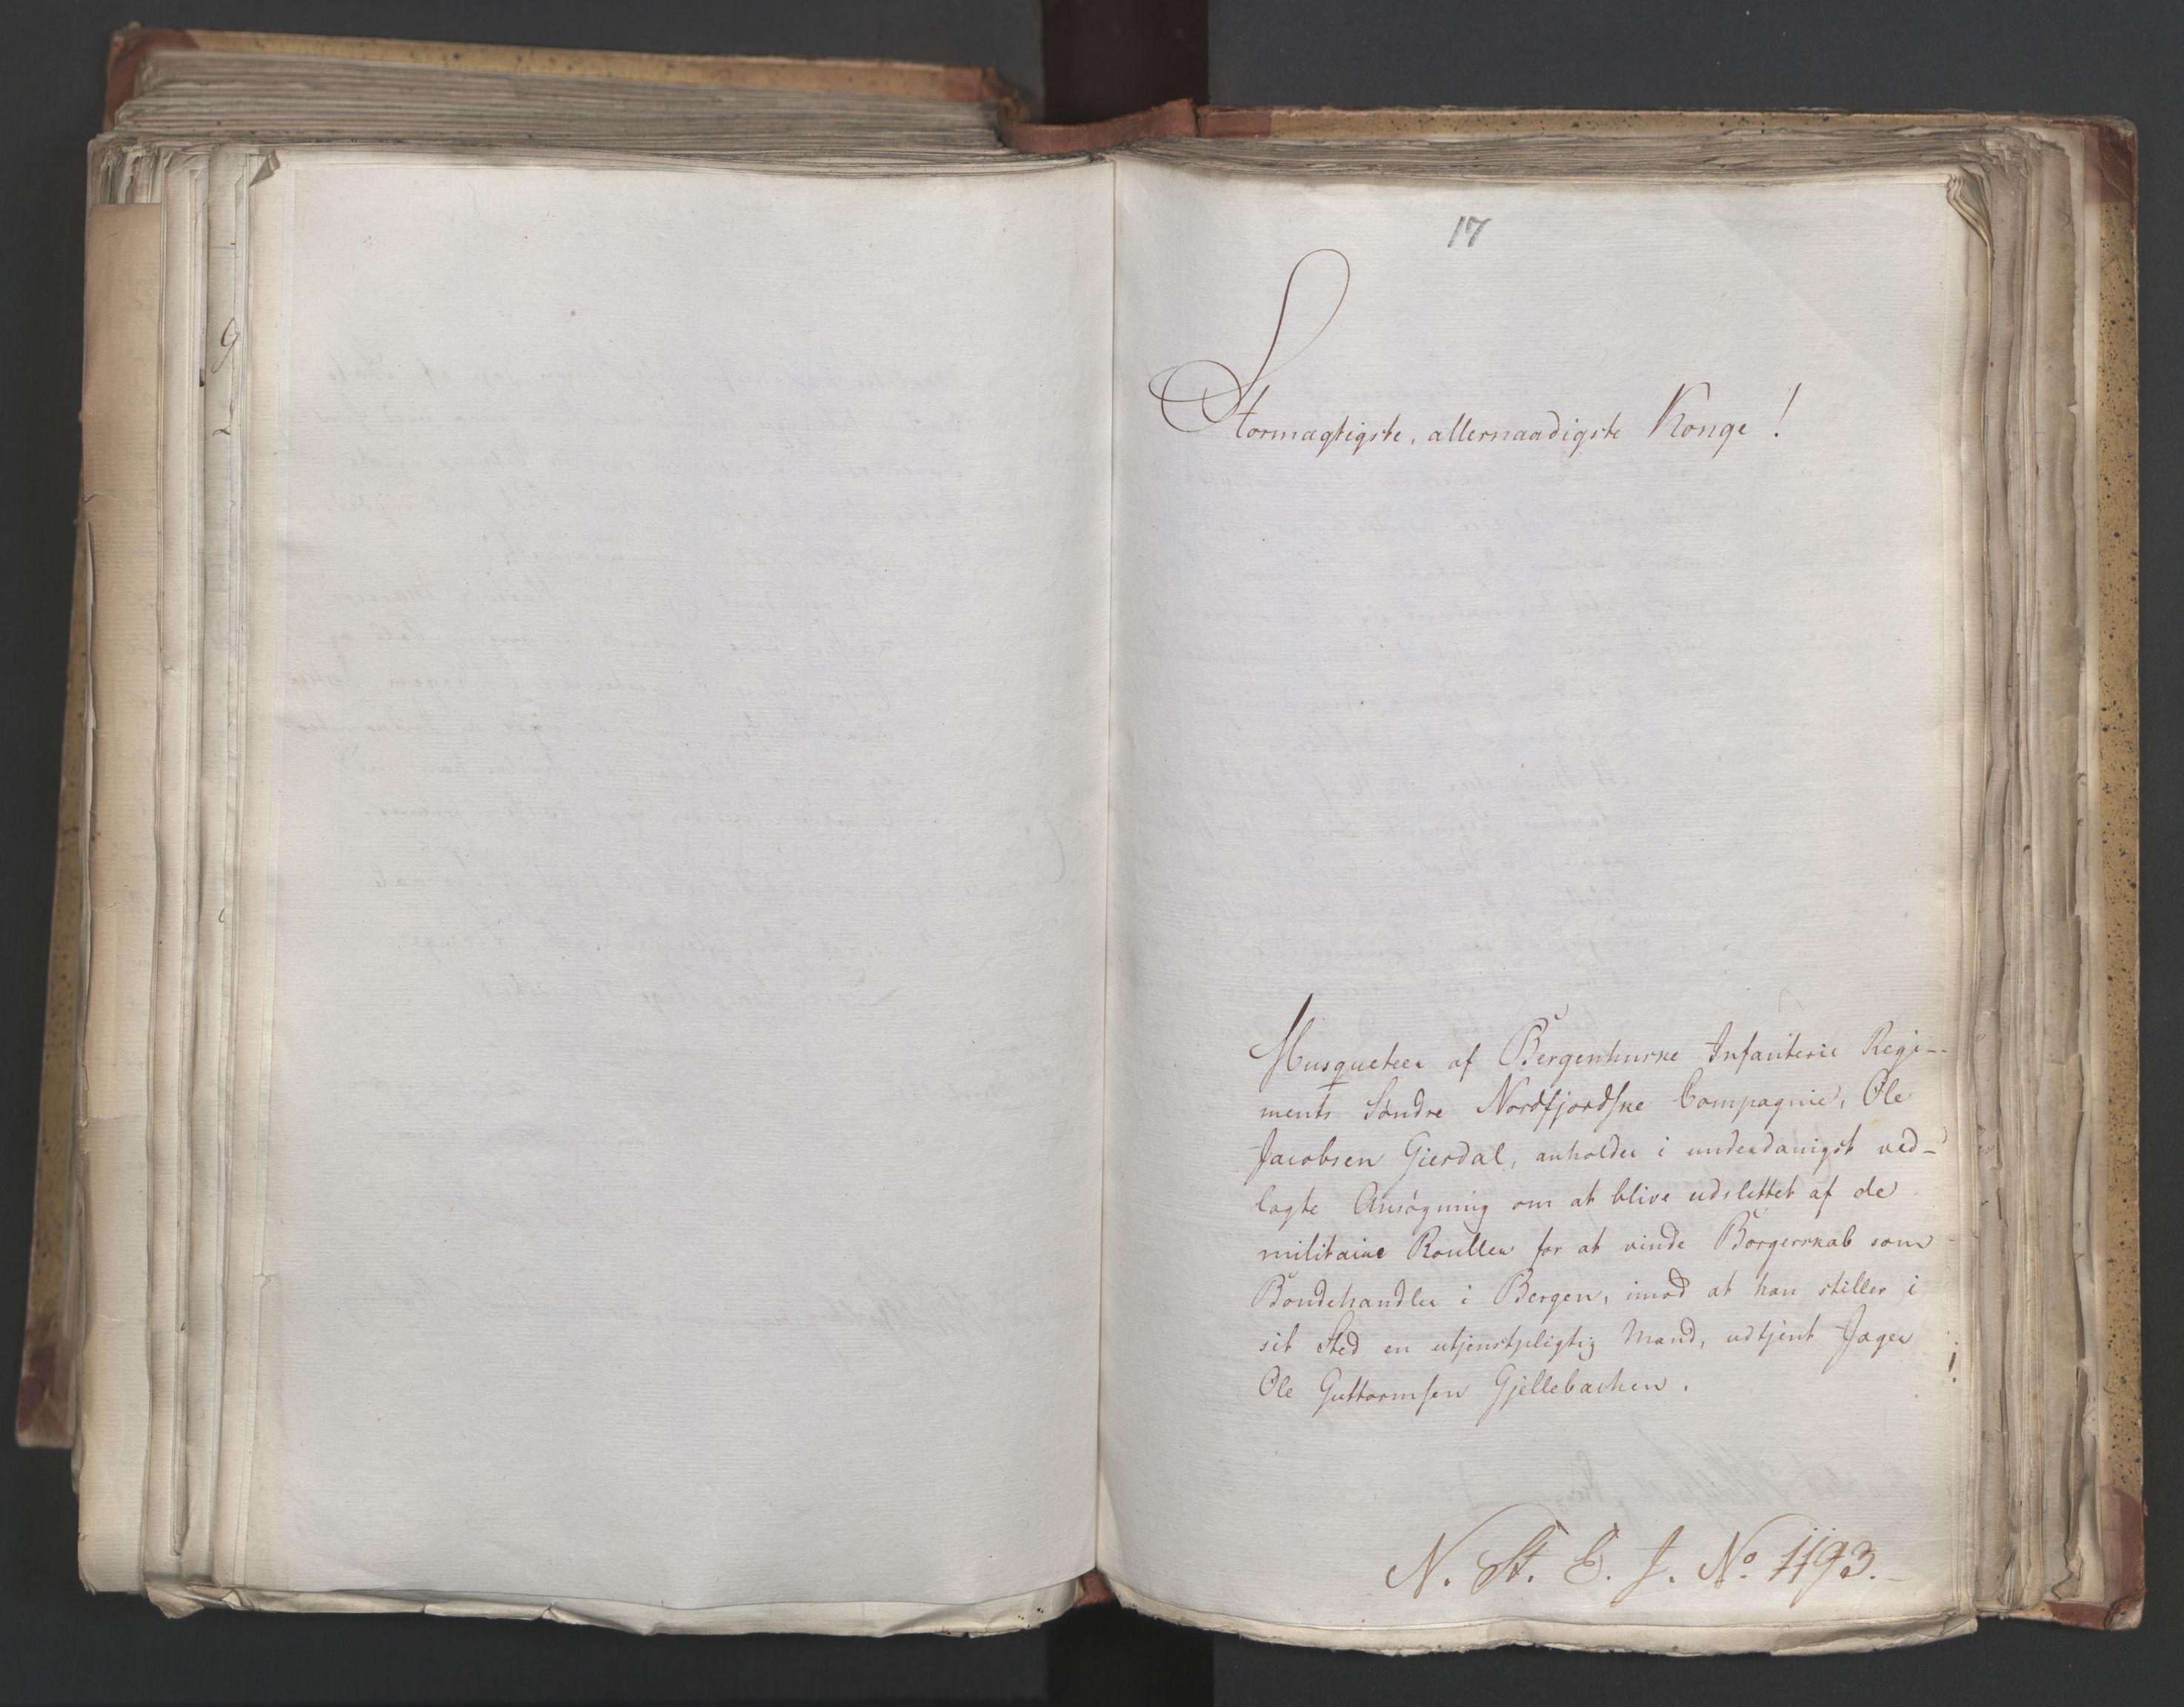 17
Stormægtigste, allernaadigste Konge!
Musqueteer af Bergenhusske Infanterie Regi-
ments Søndre Nordfjordske Compagnie, Ole
Jacobsen Gierdal, anholder i underdanigst ved-
lagte Ansøgning om at blive udslettet af de
militaire Rouller for at vinde Borgerskab som
Bondehandler i Bergen, imod at han stiller i
sit Sted en utjenstpligtig Mand, udtjent Jæger
Ole Guttormsen Gjellebachen.
N. St. C. J. No. 1193.